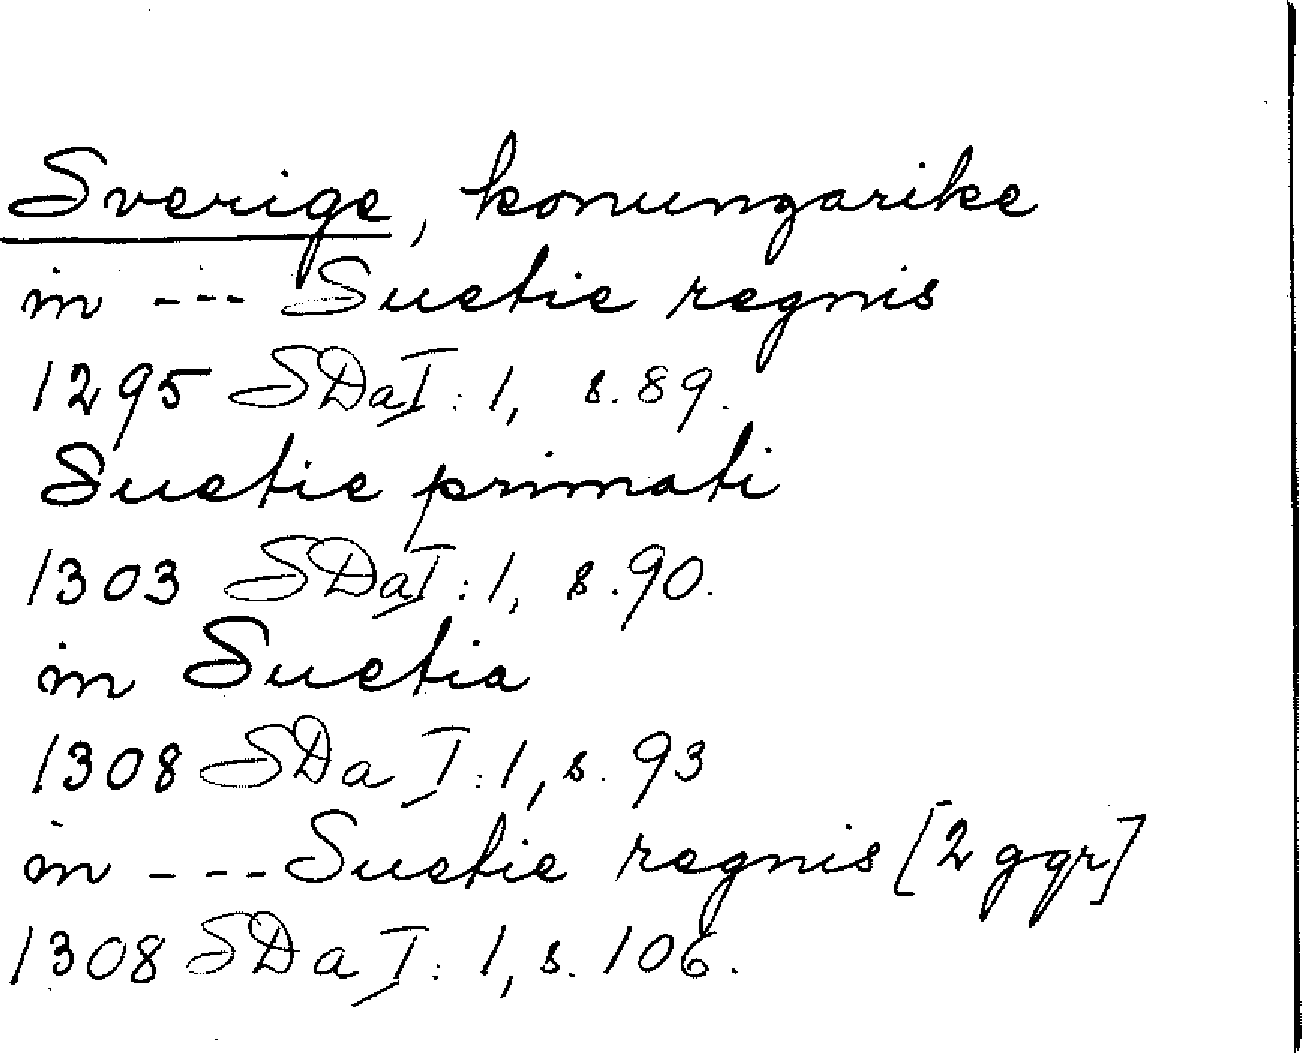 Sverige, konungarike
in --- Suetie regnis
1295 SDaI:1, s.89.
Suetie primati
1303 SDaI:1, s.90.
in Suetia
1308 SDa I:1, s. 93
in --- Suetie regnis [2 ggr]
1308 SDa I:1, s. 106.